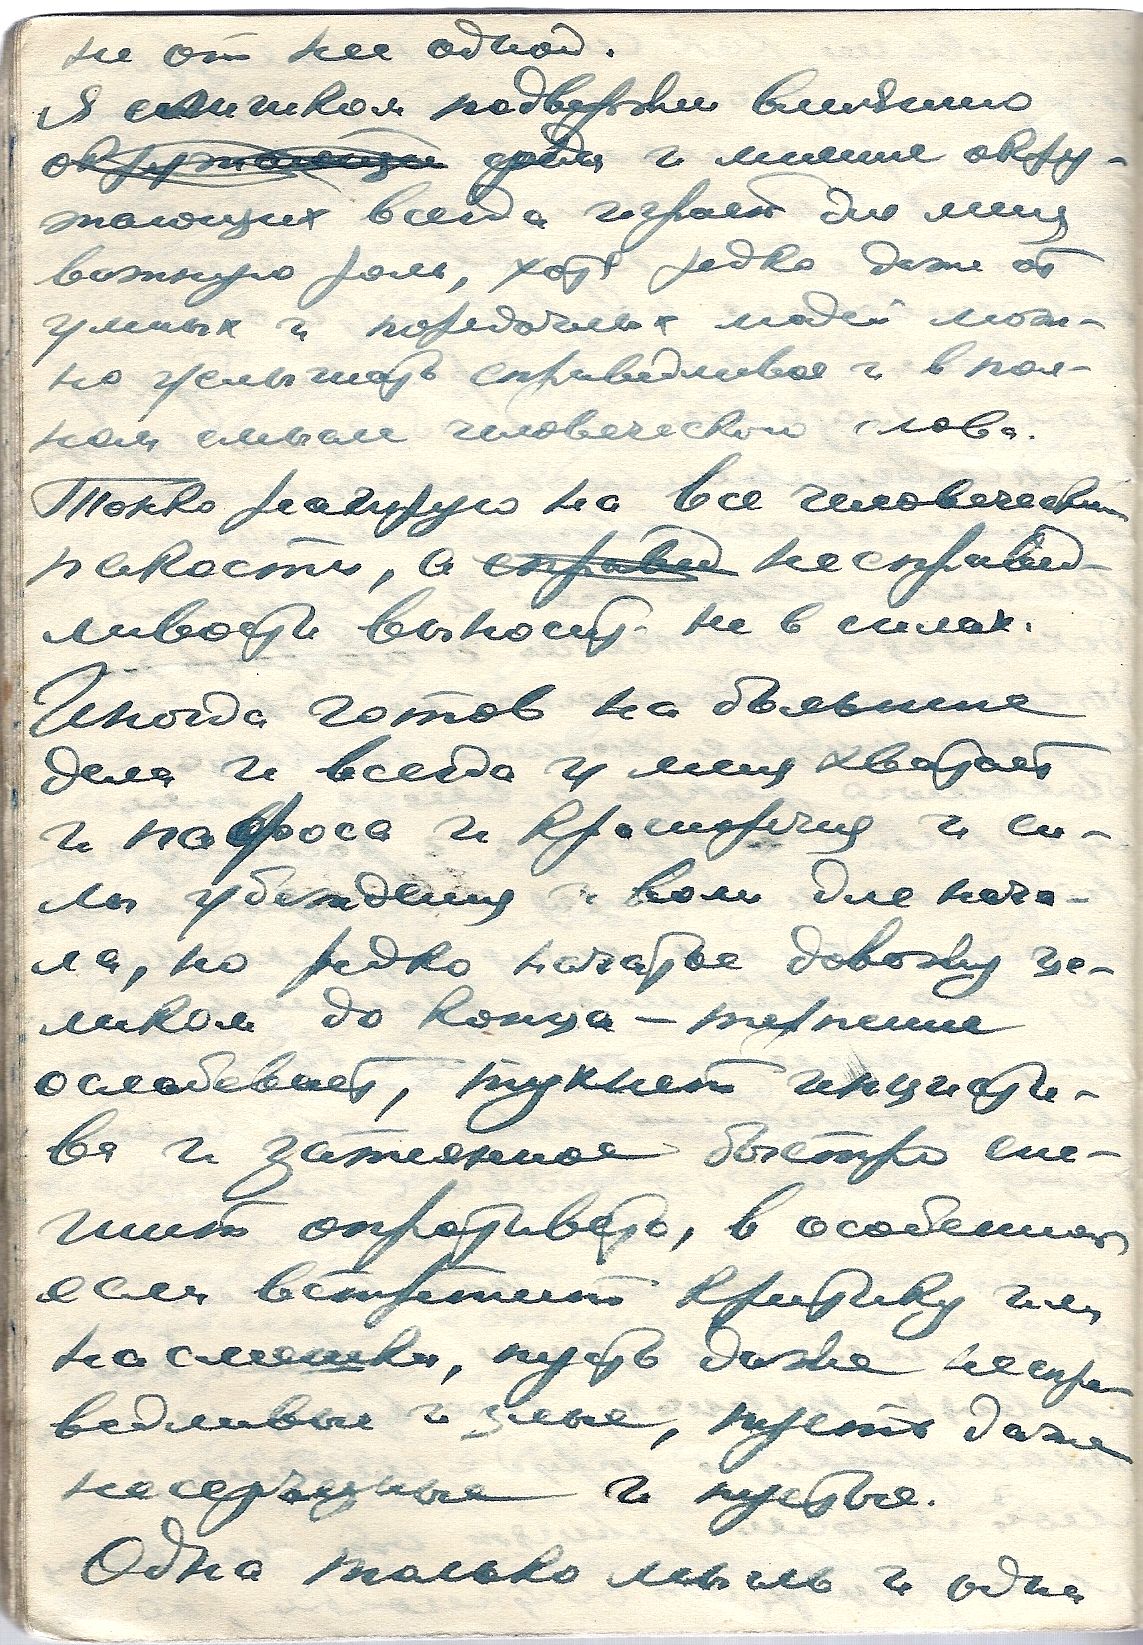 не от нее одной.
Я слишком подвержен влиянию
окружающи среды и мнение окру-
жающих всегда играет для меня
важную роль, хотя редко даже от
умных и порядочных людей мож-
но услышать справедливое и в пол-
ном смысле человеческое слово.
Тонко реагирую на все человеческие
пакости, а справед несправед-
ливости выносить не в силах.
Иногда готов на большие
дела и всегда у меня хватает
и пафоса и красноречия и си-
лы убеждения и воли для нача-
ла, но редко начатое довожу це-
ликом до конца – терпение
ослабевает, тухнет инициати-
ва и затеянное быстро спе-
шит опротиветь, в особенности
если встретит критику или
насмешки, пусть даже неспра-
ведливые и злые, пусть даже
несерьезные и пустые.
Одна только мысль и одна